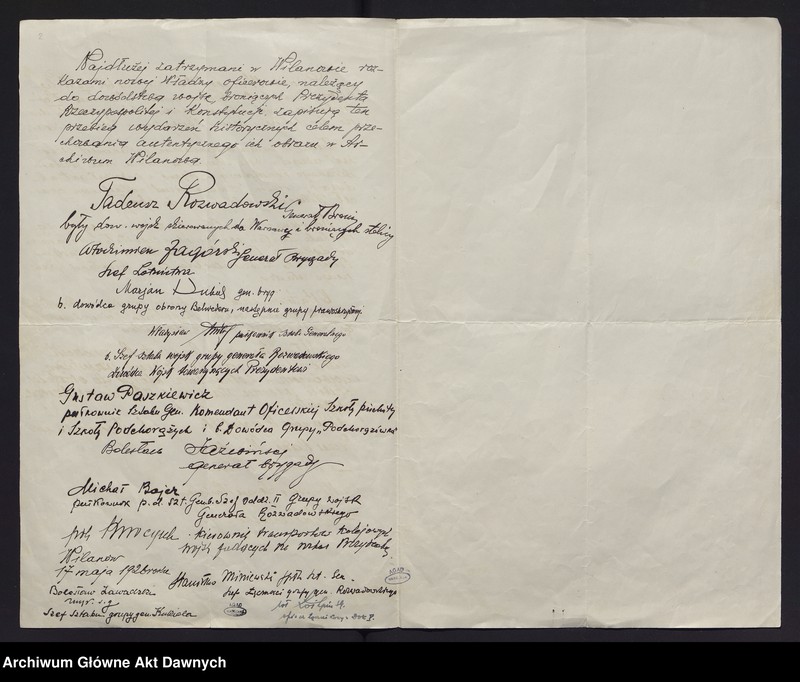 Najdłużej zatrzymani w Wilanowie roz-
kazami nowej Władzy oficerowie, należący
do dowództwa wojsk broniących Prezydenta
Rzeczypospolitej i Konstytucji zapisują ten
przebieg wydarzeń historycznych celem prze-
chowania autentycznego ich obrazu w Ar-
chiwum Wilanowa.
Tadeusz Rozwadowski Generał Broni
były dow. wojsk skierowanych do Warszawy i broniących stolicy
Włodzimierz Zagórski Generał Brygady
Szef Lotnictwa
Marjan Kukiel gen. bryg
b. dowódca grupy obrony Belwederu, następnie grupy
Władysław pułkownik Sztabu Generalnego
b. Szef Sztabu wojsk grupy generała Rozwadowskiego
Wojsk Prezydentowi
Gustaw Paszkiewicz
pułkownik Sztabu Gen. Komendant Oficerskiej Szkoły piechoty
i Szkoły Podchorążych i b. Dowódca Grupy „Podchorążówka"
Bolesław
generał brygady
Michał Bajer
pułkownik p.d. szt. Gen. Szef oddz. II Grupy wojsk
Generała Rozwadowskiego
kierownik transportów kolejowych
wojsk jadących na rozkaz Prezydenta
Wilanów
17 maja 1926 roku
Stanisław Miniewski szt. Gen.
Szef grupy gen. Rozwadowskiego
Bolesław Zawadzki
mjr. s.g
Szef Sztabu grupy gen. Kukiela
Archiwum Główne Akt Dawnych